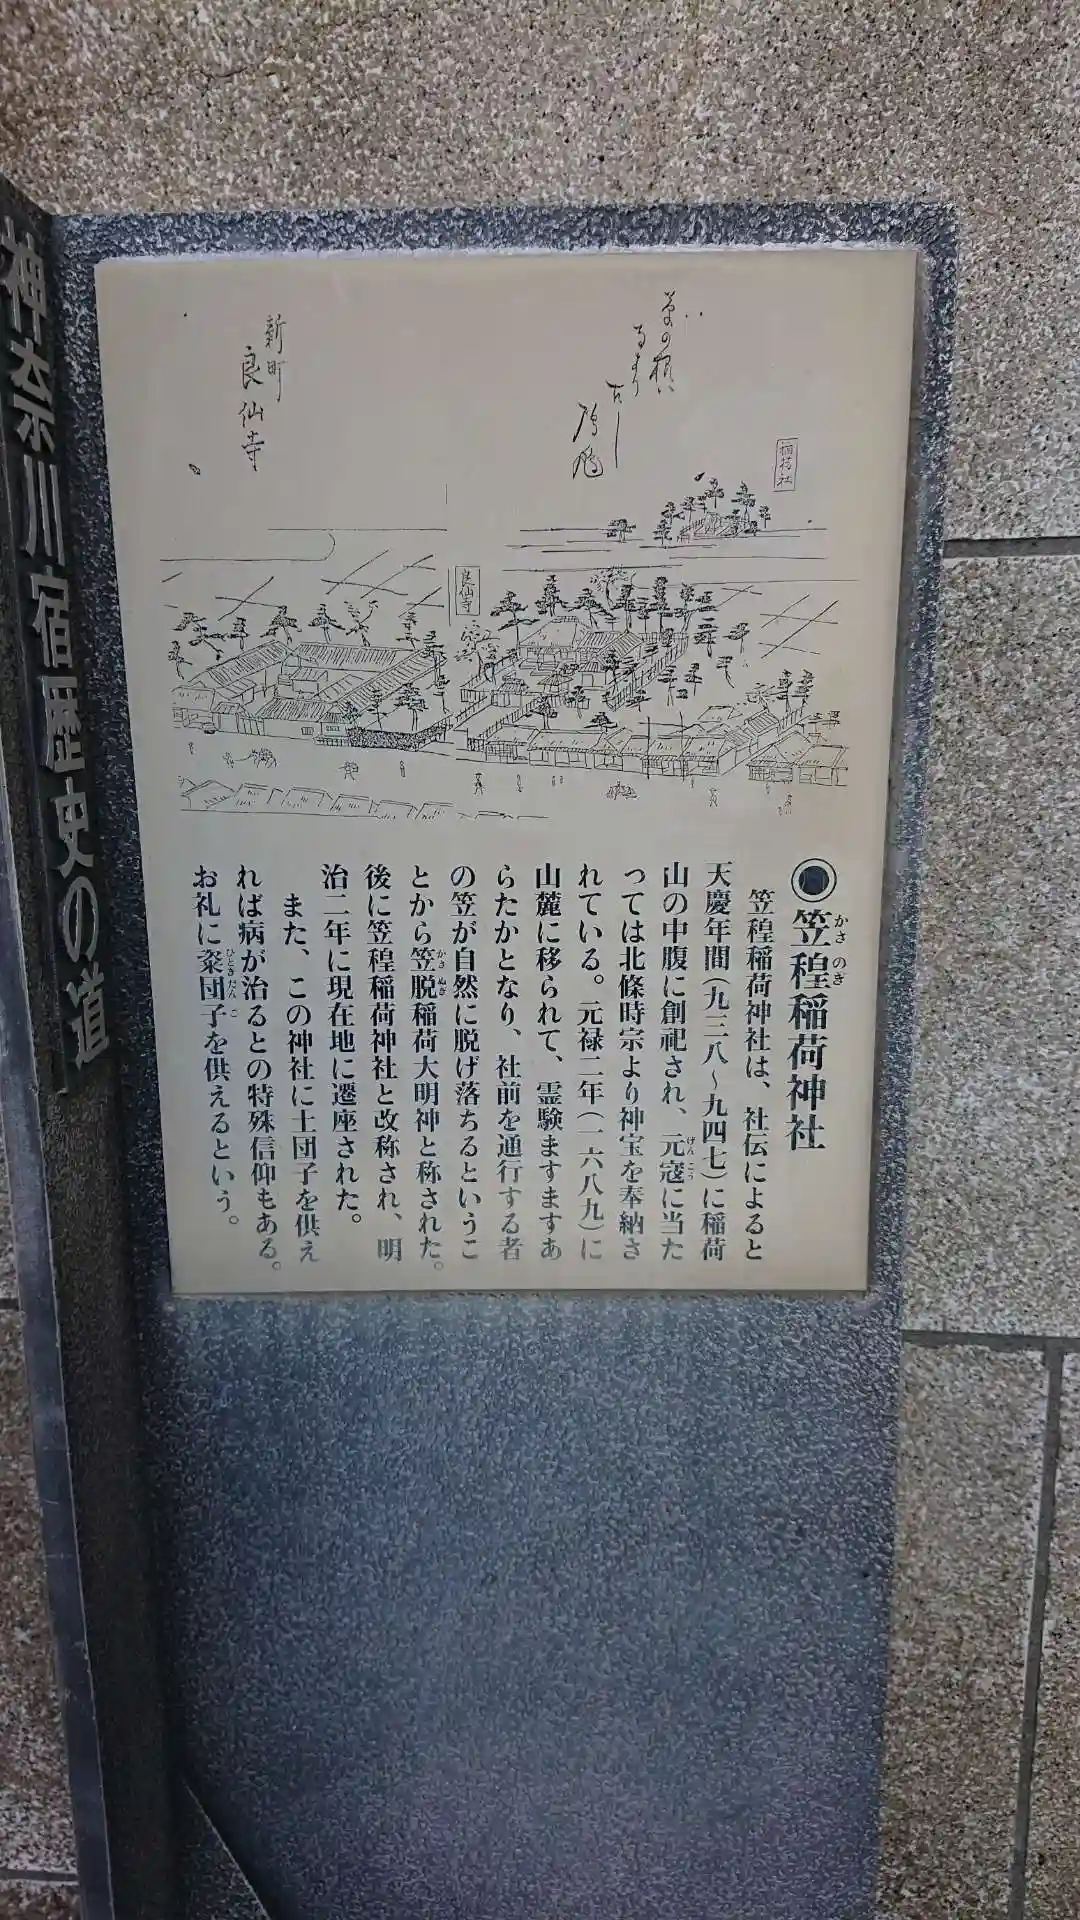 神奈川宿歴史の道
稲荷社
新町
良仙寺
良仙寺
◉笠䅣稲荷神社
かさのぎ
笠䅣稲荷神社は、社伝によると
天慶年間(九三八〜九四七)に稲荷
山の中腹に創祀され、元寇に当た
げんこう
っては北條時宗より神宝を奉納さ
れている。元禄二年(一六八九)に
山麓に移られて、霊験ますますあ
らたかとなり、社前を通行する者
の笠が自然に脱げ落ちるというこ
とから笠脱稲荷大明神と称された。
かさぬぎ
後に笠䅣稲荷神社と改称され、明
治二年に現在地に遷座された。
また、この神社に土団子を供え
れば病が治るとの特殊信仰もある。
お礼に粢団子を供えるという。
ひときだんご